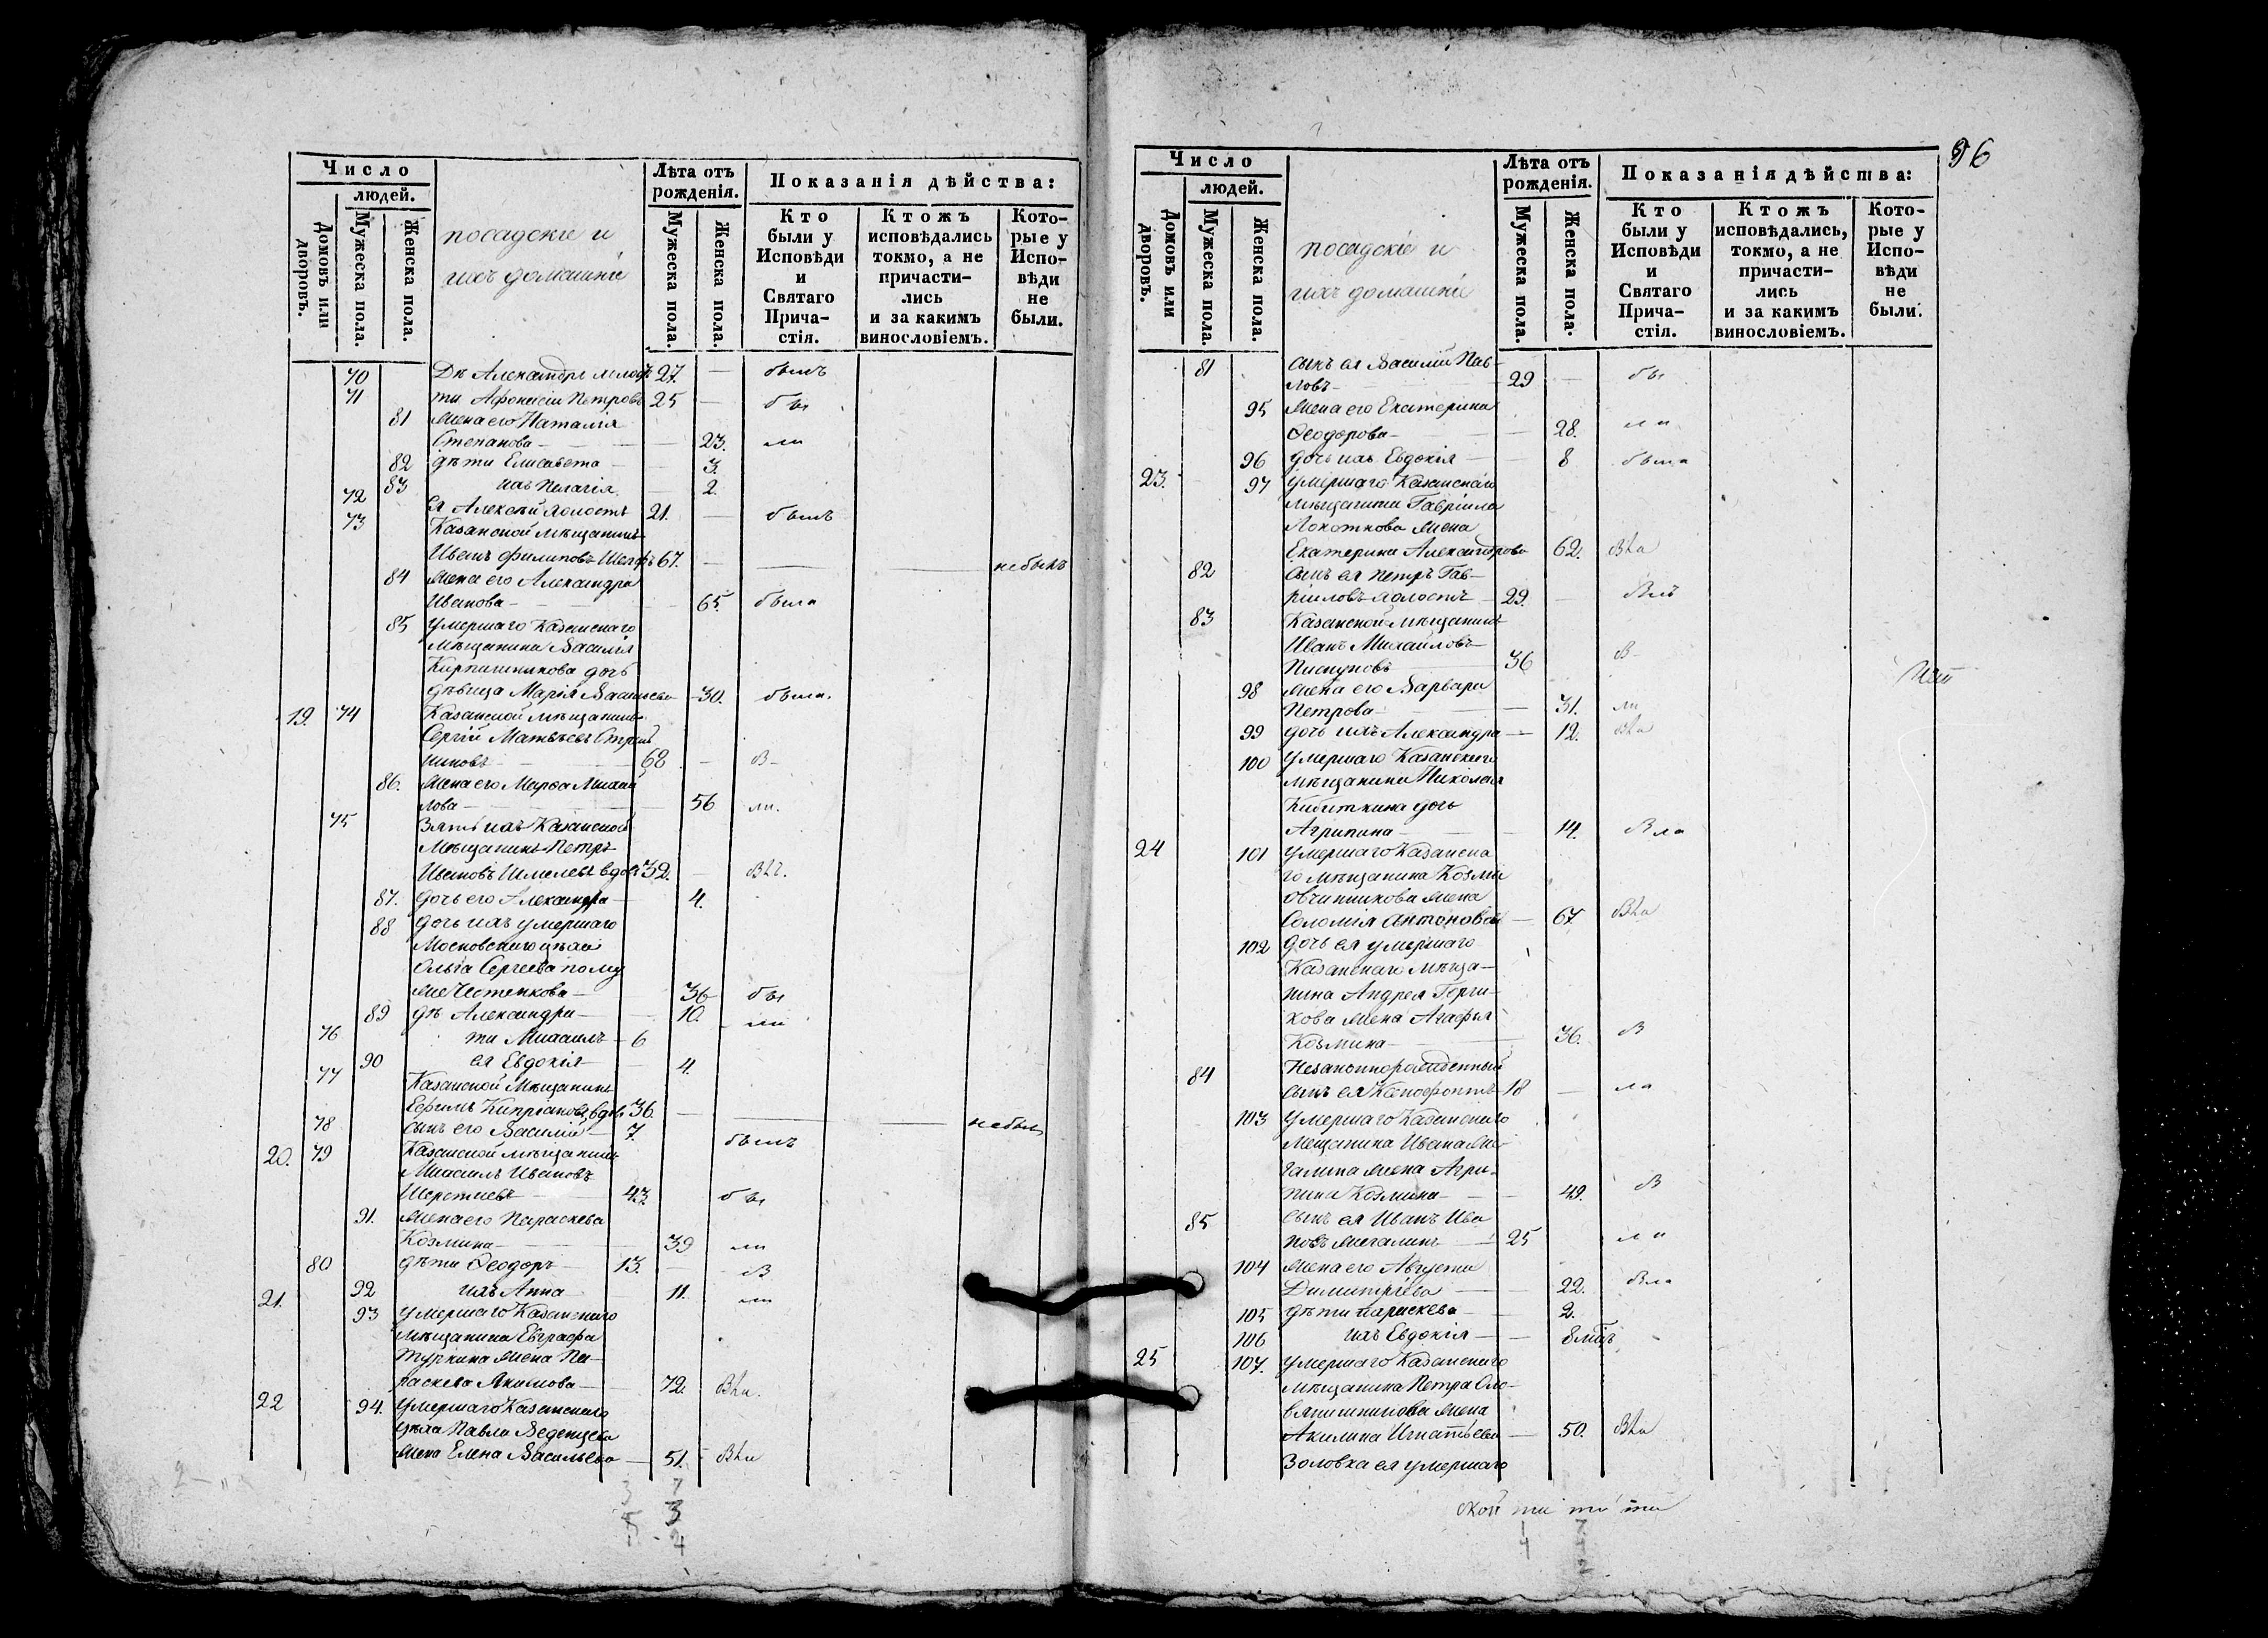 Число
людей.
Домовъ или дворовъ.
Мужеска пола.
Женска пола.
посадскіе и
ихъ домашніе
Лѣта отъ рожденія.
Мужеска пола.
Женска пола.
Показанія дѣйства:
Кто были у Исповѣди и Святаго Прича- стія.
Ктожъ исповѣдались токмо, а не причасти- лись и за какимъ винословіемъ.
Кото- рые у Испо- вѣди не были.
70 Дѣ Александръ 27. — былъ
71 ти Афонасіи Петровъ 25 — бы
81 Жена его Наталія
Степанова — 23. ли
82 дѣти Елисавета — 3.
83 ихъ Пелагія — 2.
72 ея Алексѣй холостъ 21. — былъ
73 Казанской мѣщанинъ
Иванъ Филиповъ 67. — небылъ
84 Жена его Александра
Иванова — 65. была
85 умершаго Казанскаго
Мѣщанина Василія
Кирпишникова дочь
дѣвица Марія Васильева 30. была.
19. 74 Казанской мѣщанинъ
Сергій Матвѣевъ
68 — В-
86. Жена его Марѳа Михай
лова — 56 ли.
75 Зять ихъ Казанской
Мѣщанинъ Петръ
Ивановъ Шмелевъ вдовъ 32. —
87. дочь его Александра — 4.
88 дочь ихъ умершаго
Московскаго цѣха
Ольга Сергеева по му
же — 36 бы
89 дѣ Александра — 10. ли
76 ти Михаилъ — 6
90 ея Евдокія — 4.
77 Казанской Мѣщанинъ
Ефимъ Кипріановъ вдовъ 36. — небылъ
78 сынъ его Василій — 7. былъ
20. 79 Казанской мѣщанинъ
Михаилъ Ивановъ
43. бы
91. Жена его Параскева
Козмина — 39 ли
80 дѣти Ѳеодоръ — 13. — В
92 ихъ Анна — 11. ли
21. 93 умершаго Казанскаго
мѣщанина Евграфа
Туркина жена Па-
раскева Акимова — 72.
22 94. Умершаго Казанскаго
цѣха Павла
жена Елена Васильева — 51.
96
Число
людей.
Домовъ или дворовъ.
Мужеска пола.
Женска пола.
посадскіе и
ихъ домашніе
Лѣта отъ рожденія.
Мужеска пола.
Женска пола.
Показанія дѣйства:
Кто были у Исповѣди и Святаго Прича- стія.
Ктожъ исповѣдались, токмо, а не причасти- лись и за какимъ винословіемъ.
Кото- рые у Испо- вѣди не были.
81 сынъ ея Василій Пав-
ловъ — 29 — бы
95 Жена его Екатерина
Ѳеодорова — 28. ли
96 дочь ихъ Евдокія — 8 была
23. 97 умершаго Казанскаго
мѣщанина Гавріила
Локоткова жена
Екатерина Александрова 62.
82 сынъ ея Петръ Гав-
ріиловъ холостъ — 29. —
83 Казанской мѣщанинъ
Иванъ Михайловъ
Пискуновъ 36 В-
98 жена его Варвара
Петрова — 31. ли
99 дочь ихъ Александра — 12.
100 умершаго Казанскаго
мѣщанина Николая
Кибиткина дочь
Агрипина — 14. Вла
24 101 умершаго Казанска
го мѣщанина Козмы
Овчинникова жена
Соломія Антонова — 67
102 дочь ея умершаго
Казанскаго мѣща-
нина Андрея
жена Агафья
Козмина — 36. В
84 Незаконнорожденный
сынъ ея Ксенофонтъ 18 — ла
103 умершаго Казанскаго
Мещанина Ивана Жи
галина жена Агри-
пина Козмина — 49. В
85 сынъ ея Иванъ Ива
новъ Жигалинъ — 25 ли
104 жена его Августа
Димитріева — 22. Вла
105 дѣти Параскева — 2.
106 ихъ Евдокія — 8 мѣс.
25 107. умершаго Казанскаго
мѣщанина Петра Оло-
вянишникова жена
Акилина Игнатьева — 50.
Золовка ея умершаго